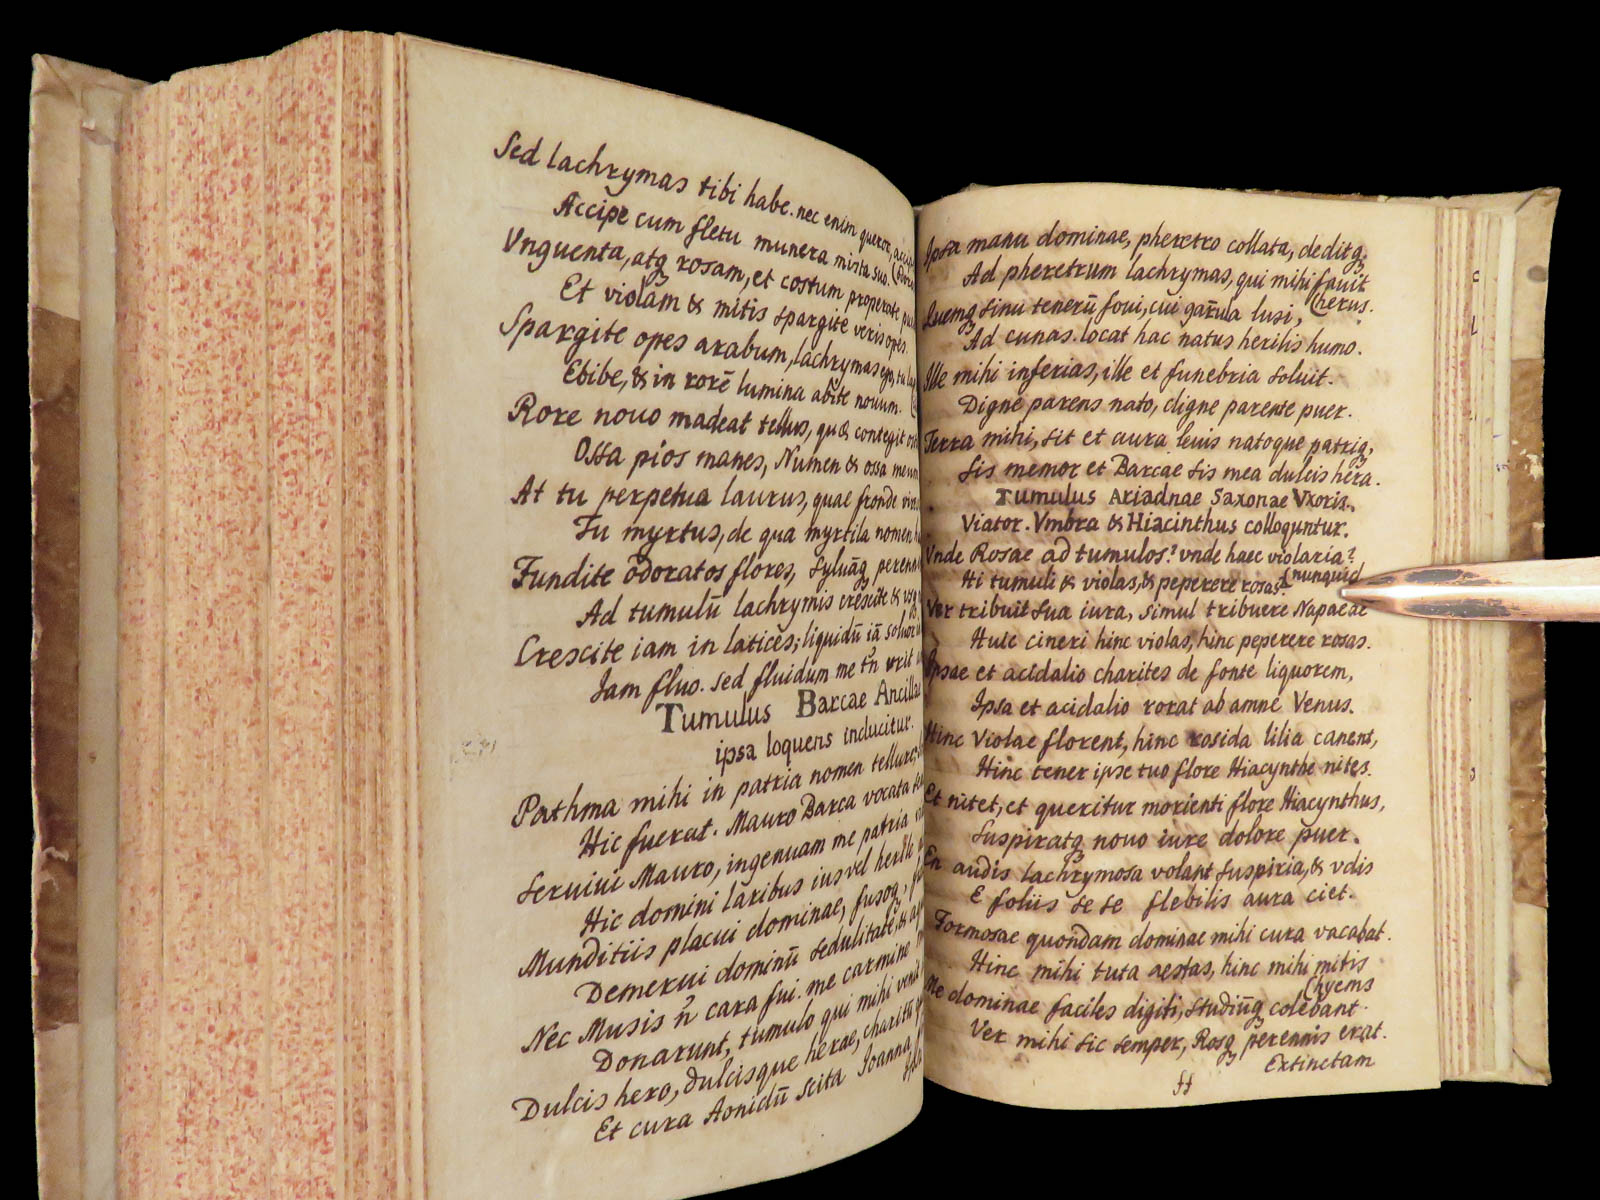 Sed lachrymas tibi habe. nec enim queror,
Accipe cum fletu munera mista suo.
Vnguenta, atq rosam, et costum properate
Et violam & mitis spargite veris opes.
Spargite opes arabum, lachrymas
Ebibe, & in rorē lumina abite nouum.
Rore nouo madeat tellus, quæ contegit
Ossa pios manes, Numen & ossa
At tu perpetua laurus, quae fronde
Tu myrtus, de qua myrtila nomen
Fundite odoratos flores, syluāq
Ad tumulū lachrymis crescite &
Crescite iam in latices; liquidū
Iam fluo. sed fluidum me tn̄ vrit
Tumulus Barcae Ancillae
ipsa loquens inducitur.
Pathma mihi in patria nomen tellure,
Hic fuerat. Mauro Barca vocata
Seruiui Mauro, ingenuam me patria
Hic domini laribus ius vel herile
Munditiis placui dominae, fusoq,
Demerui dominū sedulitate, &
Nec Musis n̄ cara fui. me carmine
Donarunt, tumulo qui mihi
Dulcis hero, dulcisque herae, charitū
Et cura Aonidū scita Ioanna
Ipsa manu dominae, pheretro collata, deditq;
Ad pheretrum lachrymas, qui mihi fauit
(herus.
Quemq sinu tenerū foui, cui garrula lusi,
Ad cunas. locat hac natus herilis humo.
Ille mihi inferias, ille et funebria soluit.
Digne parens nato, digne parente puer.
Terra mihi, sit et aura leuis natoque patriq,
Sis memor et Barcae sis mea dulcis hera.
Tumulus Ariadnae Saxonae Vxoris.
Viator. Vmbra & Hiacinthus colloquntur.
Vnde Rosae ad tumulos? vnde haec violaria?
(nunquid
Hi tumuli & violas, & peperere rosas?
Ver tribuit sua iura, simul tribuere Napaeae
Huic cineri hinc violas, hinc peperere rosas.
Ipsae et acidalio charites de fonte liquorem,
Ipsa et acidalio rorat ab amne Venus.
Hinc Violae florent, hinc rosida lilia canent,
Hinc tener ipse tuo flore Hiacynthe nites.
Et nitet, et queritur morienti flore Hiacynthus,
Suspiratq nouo iure dolore puer.
En audis lachrymosa volant suspiria, & vdis
E foliis se se flebilis aura ciet.
Formosae quondam dominae mihi cura vacabat.
Hinc mihi tuta aestas, hinc mihi mitis
(hyems
Me dominae faciles digiti, studiūq colebant.
Ver mihi sic semper, Rosq perennis erat.
Extinctam
ff